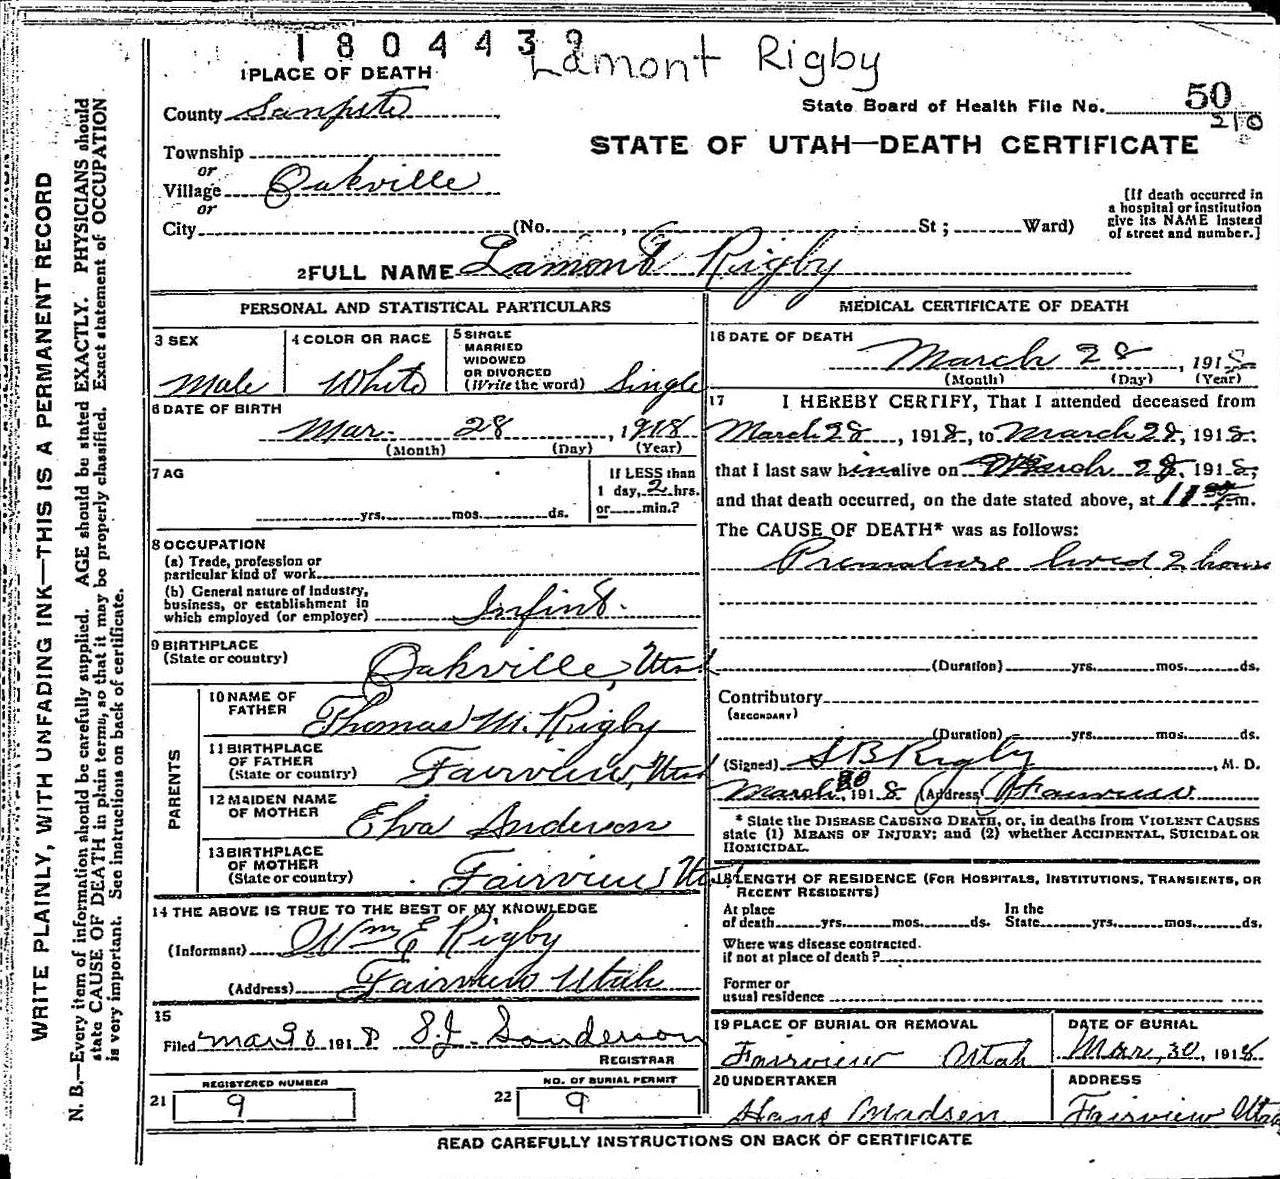 1804432
Lamont Rigby
1 PLACE OF DEATH
County Sanpete
State Board of Health File No. 50
210
STATE OF UTAH—DEATH CERTIFICATE
Township
or
Village Oakville
or
City (No. , St; Ward)
[If death occurred in
a hospital or institution
give its NAME instead
of street and number.]
2 FULL NAME Lamont Rigby
PERSONAL AND STATISTICAL PARTICULARS
3 SEX
Male
4 COLOR OR RACE
White
5 SINGLE
MARRIED
WIDOWED
OR DIVORCED
(Write the word) Single
6 DATE OF BIRTH
Mar. 28, 1918
(Month) (Day) (Year)
7 AG
yrs. mos. ds.
If LESS than
1 day, 2 hrs.
or min.?
8 OCCUPATION
(a) Trade, profession or
particular kind of work
(b) General nature of industry,
business, or establishment in
which employed (or employer) Infint.
9 BIRTHPLACE
(State or country) Oakville, Utah
PARENTS
10 NAME OF
FATHER Thomas M. Rigby
11 BIRTHPLACE
OF FATHER
(State or country) Fairview, Utah
12 MAIDEN NAME
OF MOTHER Elva Anderson
13 BIRTHPLACE
OF MOTHER
(State or country) Fairview, Uta
14 THE ABOVE IS TRUE TO THE BEST OF MY KNOWLEDGE
(Informant) Wm E Rigby
(Address) Fairview Utah
15
Filed Mar 30 1918 S.J. Sanderson
REGISTRAR
REGISTERED NUMBER
21 9
NO. OF BURIAL PERMIT
22 9
MEDICAL CERTIFICATE OF DEATH
16 DATE OF DEATH
March 28, 1918
(Month) (Day) (Year)
17 I HEREBY CERTIFY, That I attended deceased from
March 28, 1918, to March 28, 1918,
that I last saw him alive on March 28, 1918,
and that death occurred, on the date stated above, at 11 m.
The CAUSE OF DEATH* was as follows:
Premature lived 2 hours
(Duration) yrs. mos. ds.
Contributory
(SECONDARY)
(Duration) yrs. mos. ds.
(Signed) S B Rigby, M. D.
March 30, 1918 (Address) Fairview
* State the DISEASE CAUSING DEATH, or, in deaths from VIOLENT CAUSES
state (1) MEANS OF INJURY; and (2) whether ACCIDENTAL, SUICIDAL OR
HOMICIDAL.
18 LENGTH OF RESIDENCE (FOR HOSPITALS, INSTITUTIONS, TRANSIENTS, OR
RECENT RESIDENTS)
At place
of death yrs. mos. ds.
In the
State yrs. mos. ds.
Where was disease contracted.
if not at place of death?
Former or
usual residence
19 PLACE OF BURIAL OR REMOVAL
Fairview Utah
DATE OF BURIAL
Mar, 30, 1918
20 UNDERTAKER
Hans Madsen
ADDRESS
Fairview Utah
READ CAREFULLY INSTRUCTIONS ON BACK OF CERTIFICATE
WRITE PLAINLY, WITH UNFADING INK—THIS IS A PERMANENT RECORD
N. B.—Every item of information should be carefully supplied. AGE should be stated EXACTLY. PHYSICIANS should
state CAUSE OF DEATH in plain terms, so that it may be properly classified. Exact statement of OCCUPATION
is very important. See instructions on back of certificate.